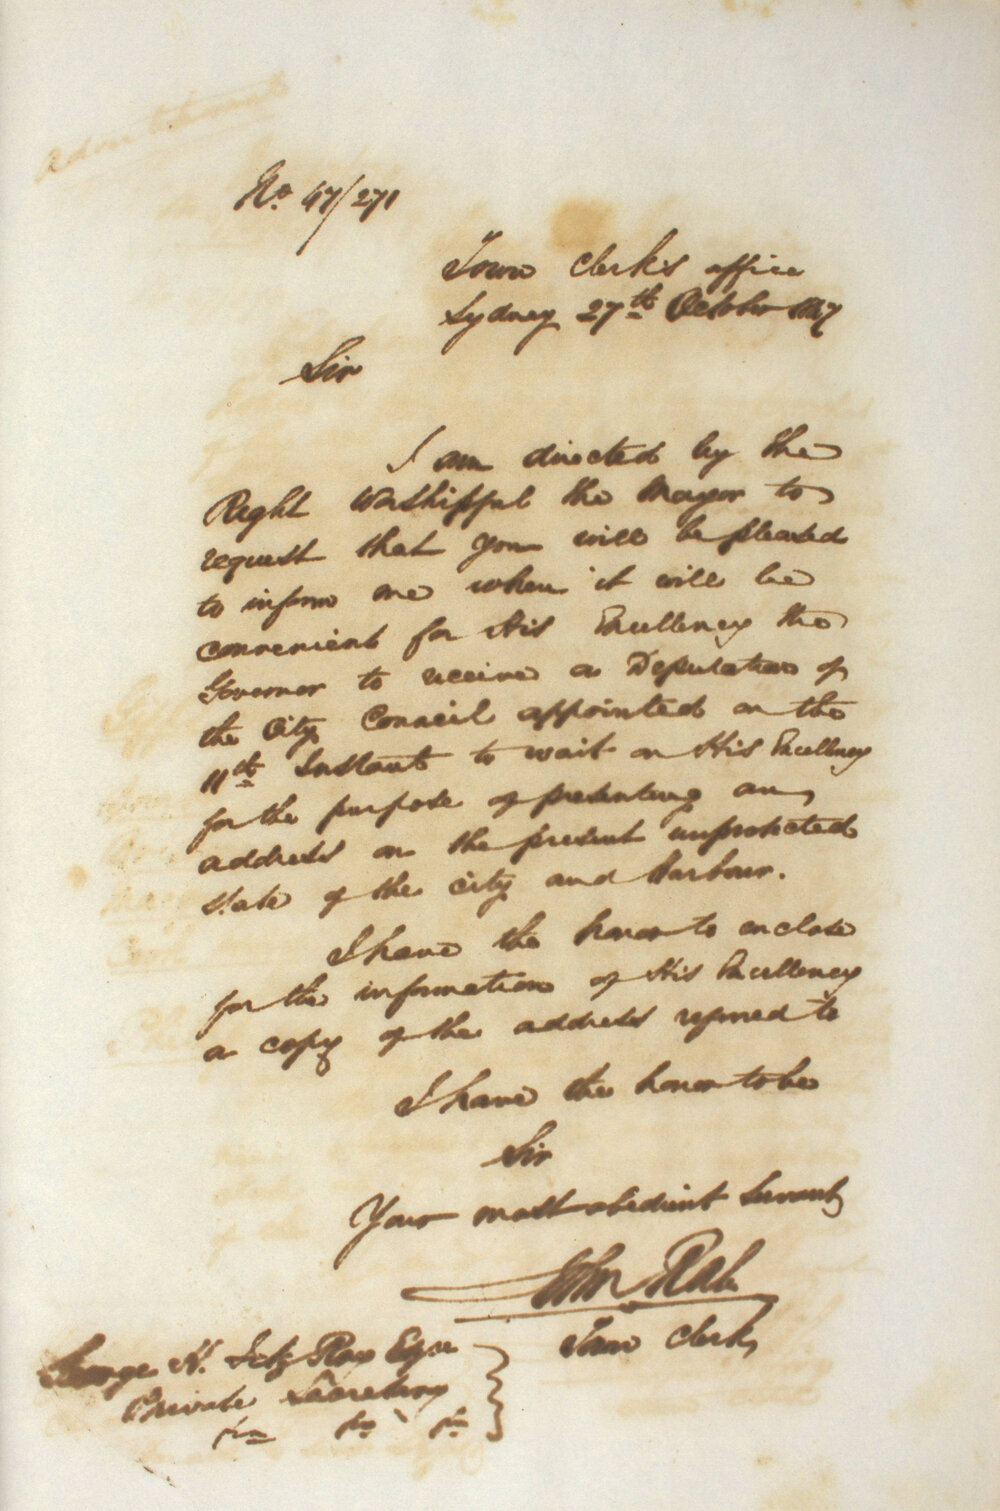 No. 47/271
Town Clerk's office
Sydney 27th October 1847
Sir
I am directed by the
Right Worshipful the Mayor to
request that you will be pleased
to inform me when it will be
convenient for His Excellency the
Governor to receive a Deputation of
the City Council appointed on the
11th Instant to wait on His Excellency
for the purpose of presenting an
address on the present unprotected
state of the city and Harbour.
I have the honor to enclose
for the information of His Excellency
a copy of the address referred to
I have the honor to be
Sir
Your most obedient Servant
John Rae
Town Clerk
George H. Fitz Roy Esqr
Private Secretary